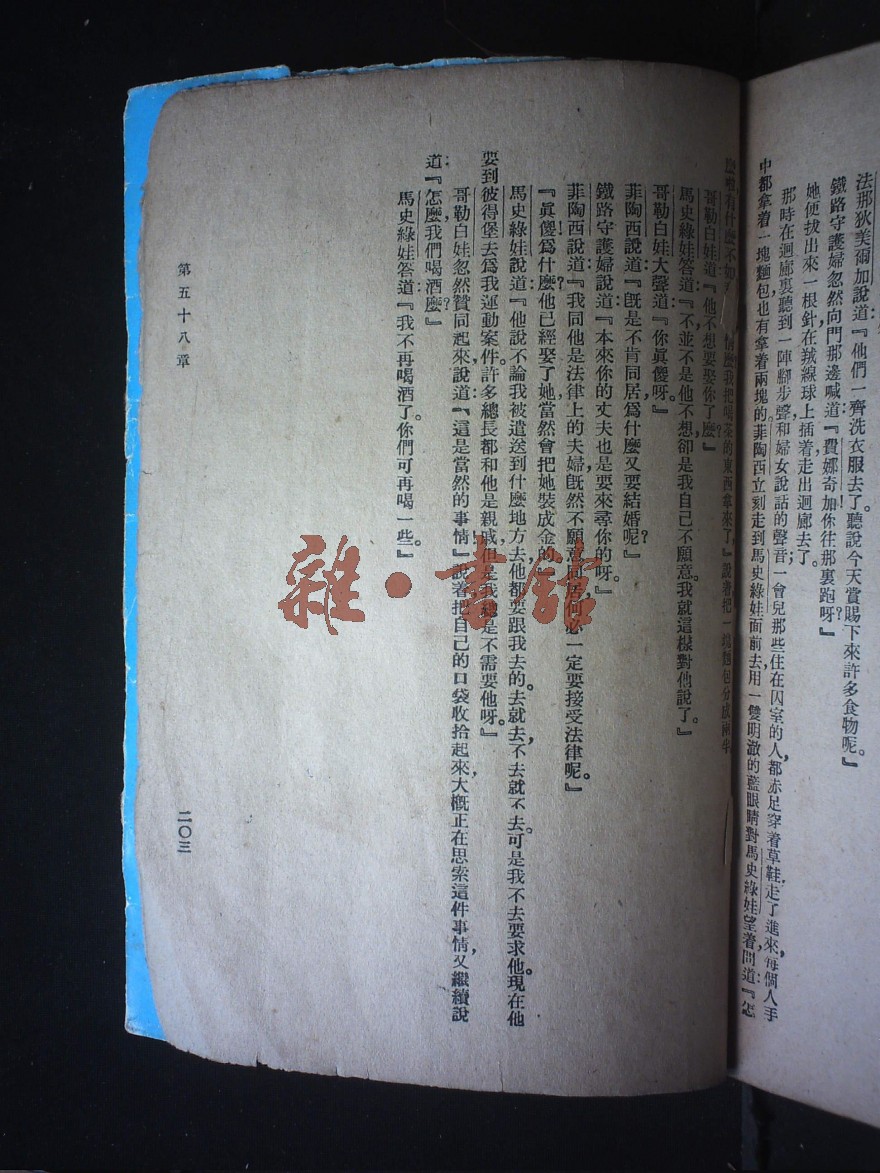 法那狄美爾加說道：『他們一齊洗衣服去了。聽說今天賞賜下來許多食物呢。』
鐵路守護婦忽然向門那邊喊道：『費娜奇加！你往那裏跑呀？』
她便拔出來一根針在羢線球上插着走出迴廊去了。
那時在迴廊裏聽到一陣腳步聲和婦女說話的聲音；一會兒那些住在囚室的人，都赤足穿着草鞋走了進來，每個人手
中都拿着一塊麵包也有拿着兩塊的菲陶西立刻走到馬史綠娃面前去，用一雙明澈的藍眼睛對馬史綠娃望着，問道：『怎
有什麼不如 情麼？我把喝茶的東西拿來了。』說着把一塊麵包分成兩半
哥勒白娃道：『他不想要娶你了麼？』
馬史綠娃答道：『不，並不是他不想，卻是我自己不願意。我就這樣對他說了。』
哥勒白娃大聲道：『你眞傻呀。』
菲陶西說道：『旣是不肯同居，爲什麼又要結婚呢？』
鐵路守護婦說道：『本來你的丈夫也是要來尋你的呀。』
菲陶西說道：『我同他是法律上的夫婦旣然不願意同居何必一定要接受法律呢。』
『眞傻！爲什麼？他已經娶了她當然會把她裝成金的
馬史綠娃說道：『他說不論我被遣送到什麼地方去，他都要跟我去的。去就去，不去就不去。可是我不去要求他。現在他
要到彼得堡去爲我運動案件。許多總長都和他是親戚，但是我總是不需要他呀。』
哥勒白娃忽然贊同起來，說道：『這是當然的事情！』說着把自己的口袋收拾起來，大槪正在思索這件事情，又繼續說
道：『怎麼我們喝酒麼？』
馬史綠娃答道：『我不再喝酒了。你們可再喝一些。』
第五十八章
二〇三
雜·書館